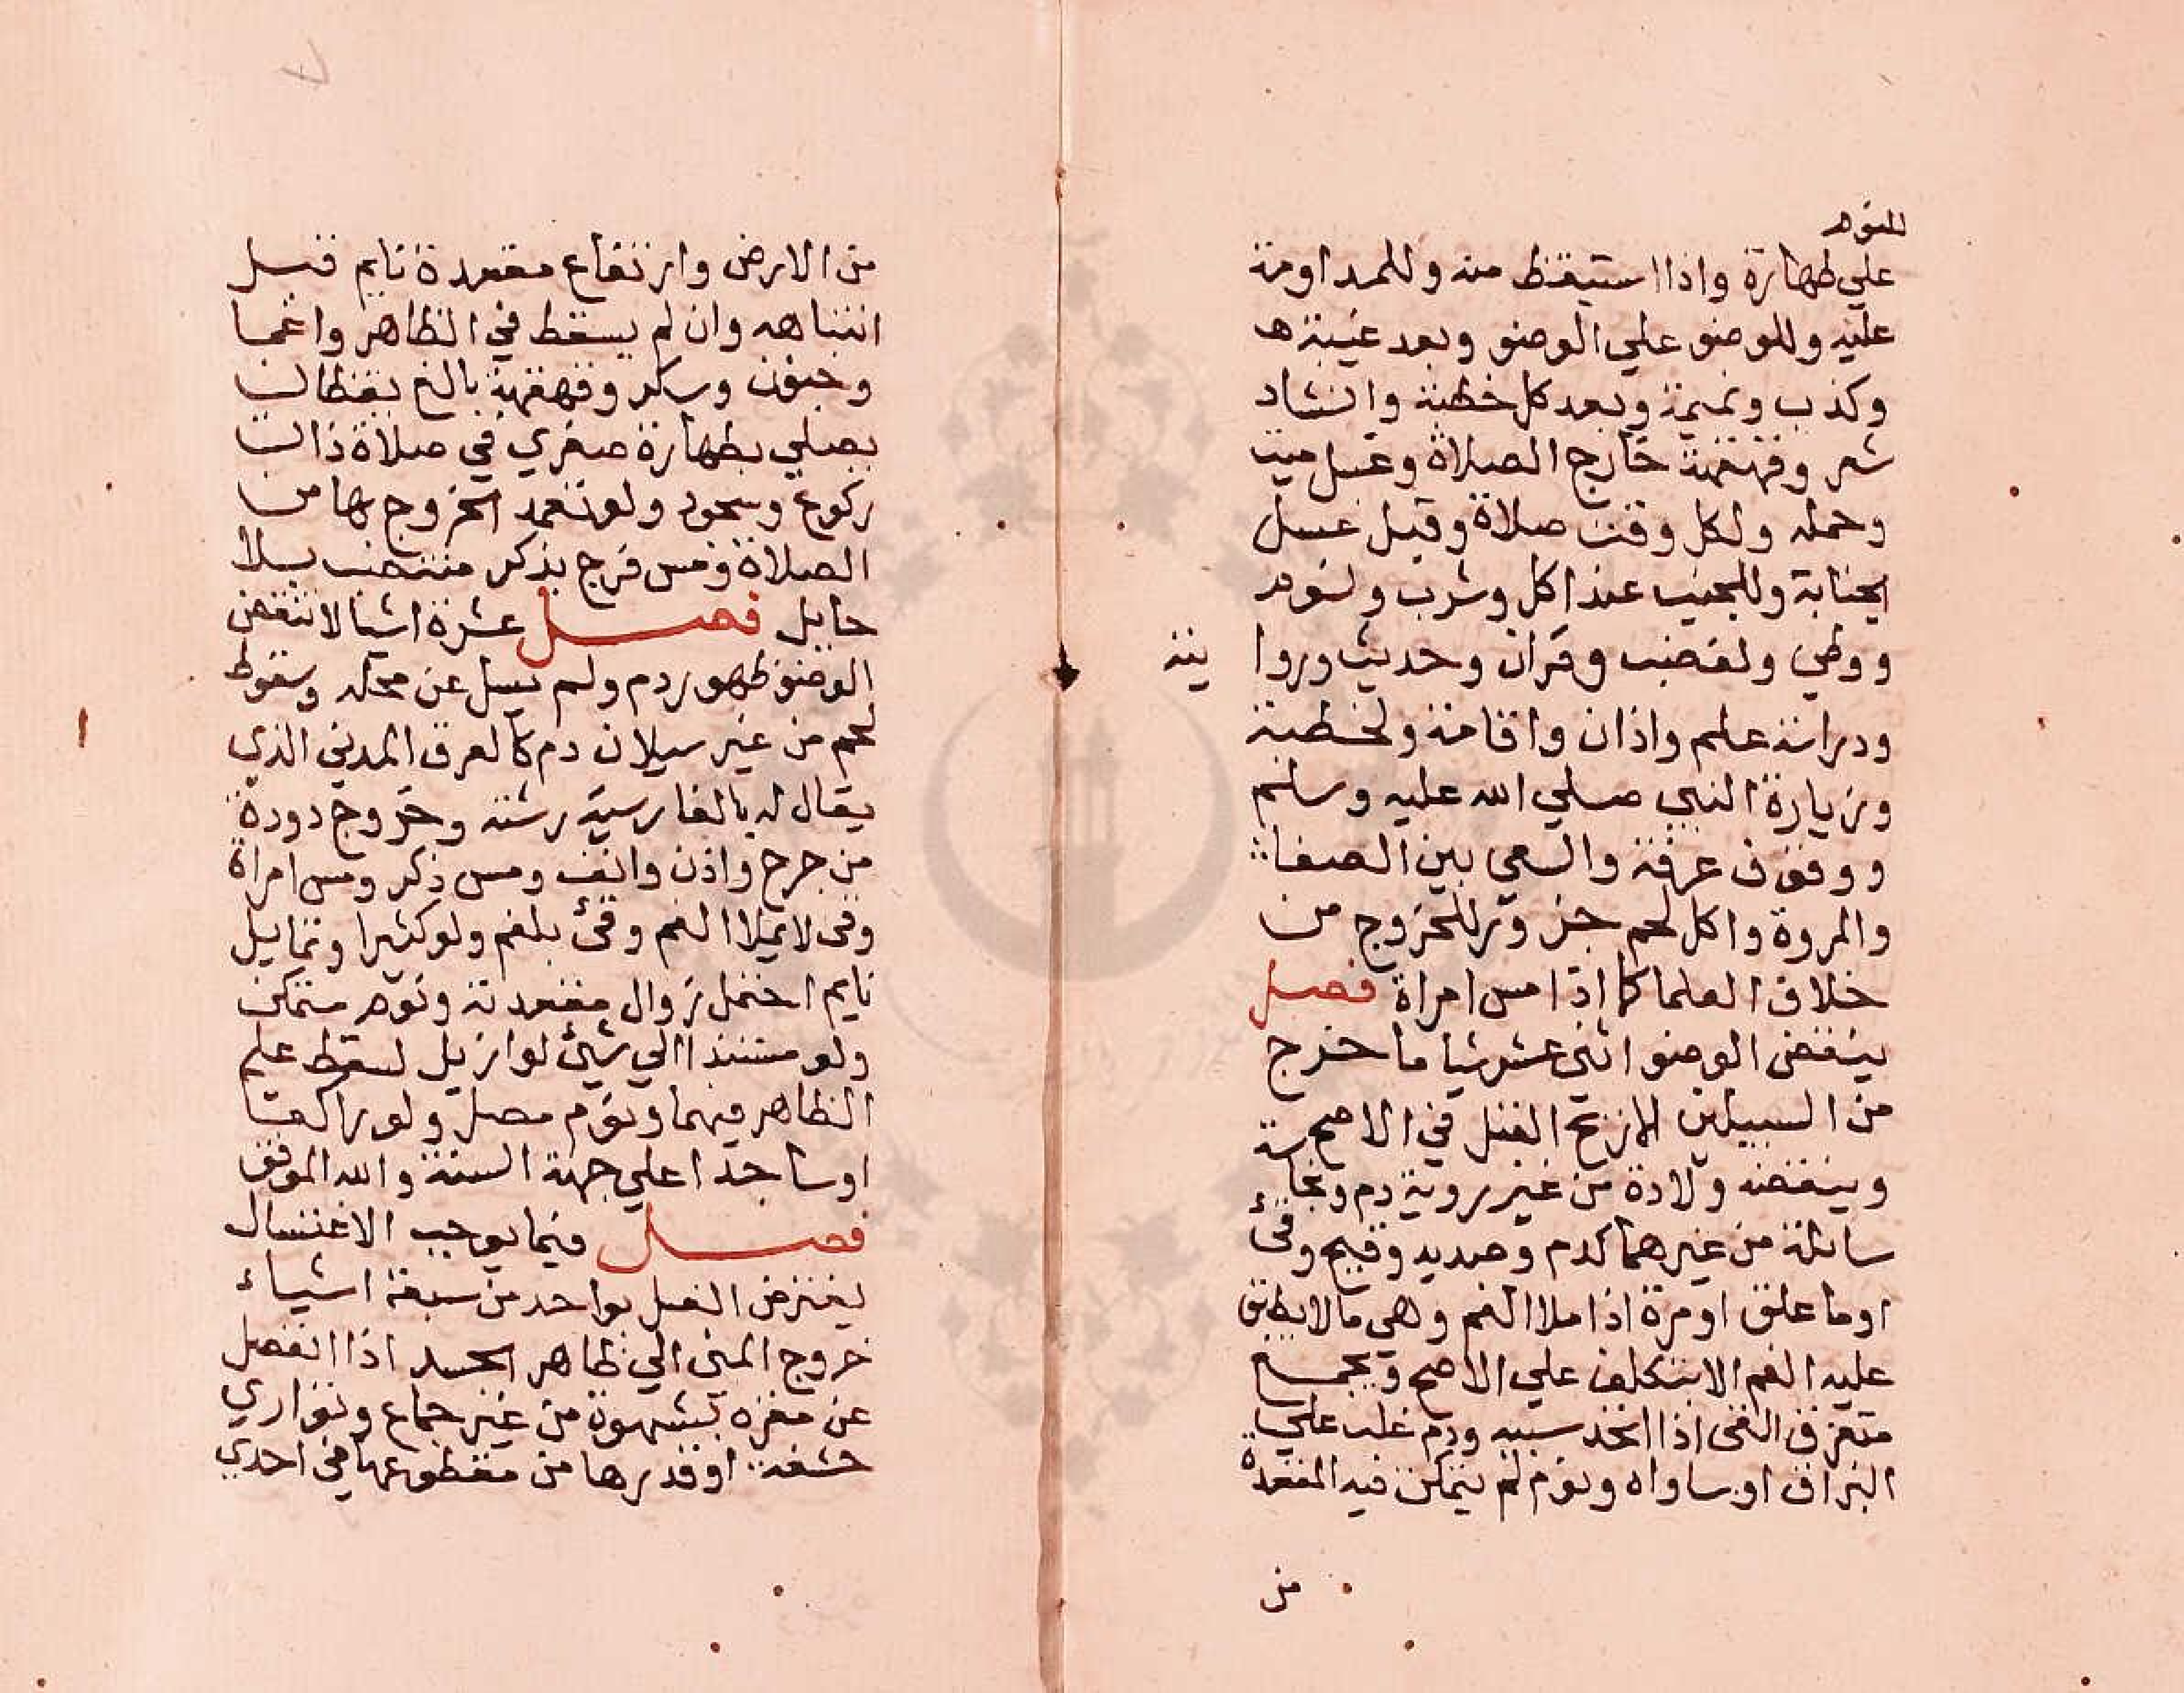 للنوم
علي طهارة واذا استيقظ منه وللمداومة
عليه وللوضو علي الوضو وبعد غيبة
وكذب ونميمة وبعد كل خطية وانشاد
شعر وقهقهة خارج الصلاة وغسل ميت
وحمله ولكل وقت صلاة وقبل غسل
الجنابة وللجنب عند اكل وشرب ونوم
ووطي ولغضب وقران وحديث وروا ينه
ودراسة علم واذان واقامة ولخطبة
وزيارة النبي صلي الله عليه وسلم
ووقوف عرفة والسعي بين الصفا
والمروة واكل لحم جزور للخروج من
خلاف العلما كما اذا مس امراة فصل
ينقض الوضو اثني عشر شيا ما خرج
من السبيلين الا ريح القبل في الاصح
وينقضه ولادة من غير روية دم ونجاسة
سائلة من غيرهما كدم وصديد وقيح وقئ
او ما علق او مرة اذا ملا الفم وهي ما لا ينطبق
عليه الفم الا بتكلف علي الاصح ويجمع
متفرق القي اذا اتخد سببه ودم غلب علي
البزاق او ساواه ونوم لم يتمكن فيه المقعدة
من
من الارض وارتفاع مقعدة نايم قبل
انتباهه وان لم يسقط في الظاهر واغما
وجنون وسكر وقهقهة بالغ يقظان
يصلي بطهارة صغري في صلاة ذات
ركوع وسجود ولو تعمد الخروج بها من
الصلاة ومس فرج بذكر منتصب بلا
حايل فصل عشرة اشيا لا تنقض
الوضو ظهور دم ولم يسل عن محله وسقوط
لحم من غير سيلان دم كالعرق المدني الذي
يقال له بالفارسية رشته وخروج دودة
من جرح واذن وانف ومس ذكر ومس امراة
وقى لا يملا الفم وقئ بلغم ولو كثيرا وتمايل
نايم احتمل زوال مقعدته ونوم متمكن
ولو مستندا الي شئ لو ازيل لسقط علي
الظاهر فيهما ونوم مصل ولو راكعا
او ساجدا علي جهة السنة والله الموفق
فصل فيما يوجب الاغتسال
يفترض الغسل بواحد من سبعة اشياء
خروج المني الي ظاهر الجسد اذا انفصل
عن مقره بشهوة من غير جماع وتواري
حشفة او قدرها من مقطوعها في احدي